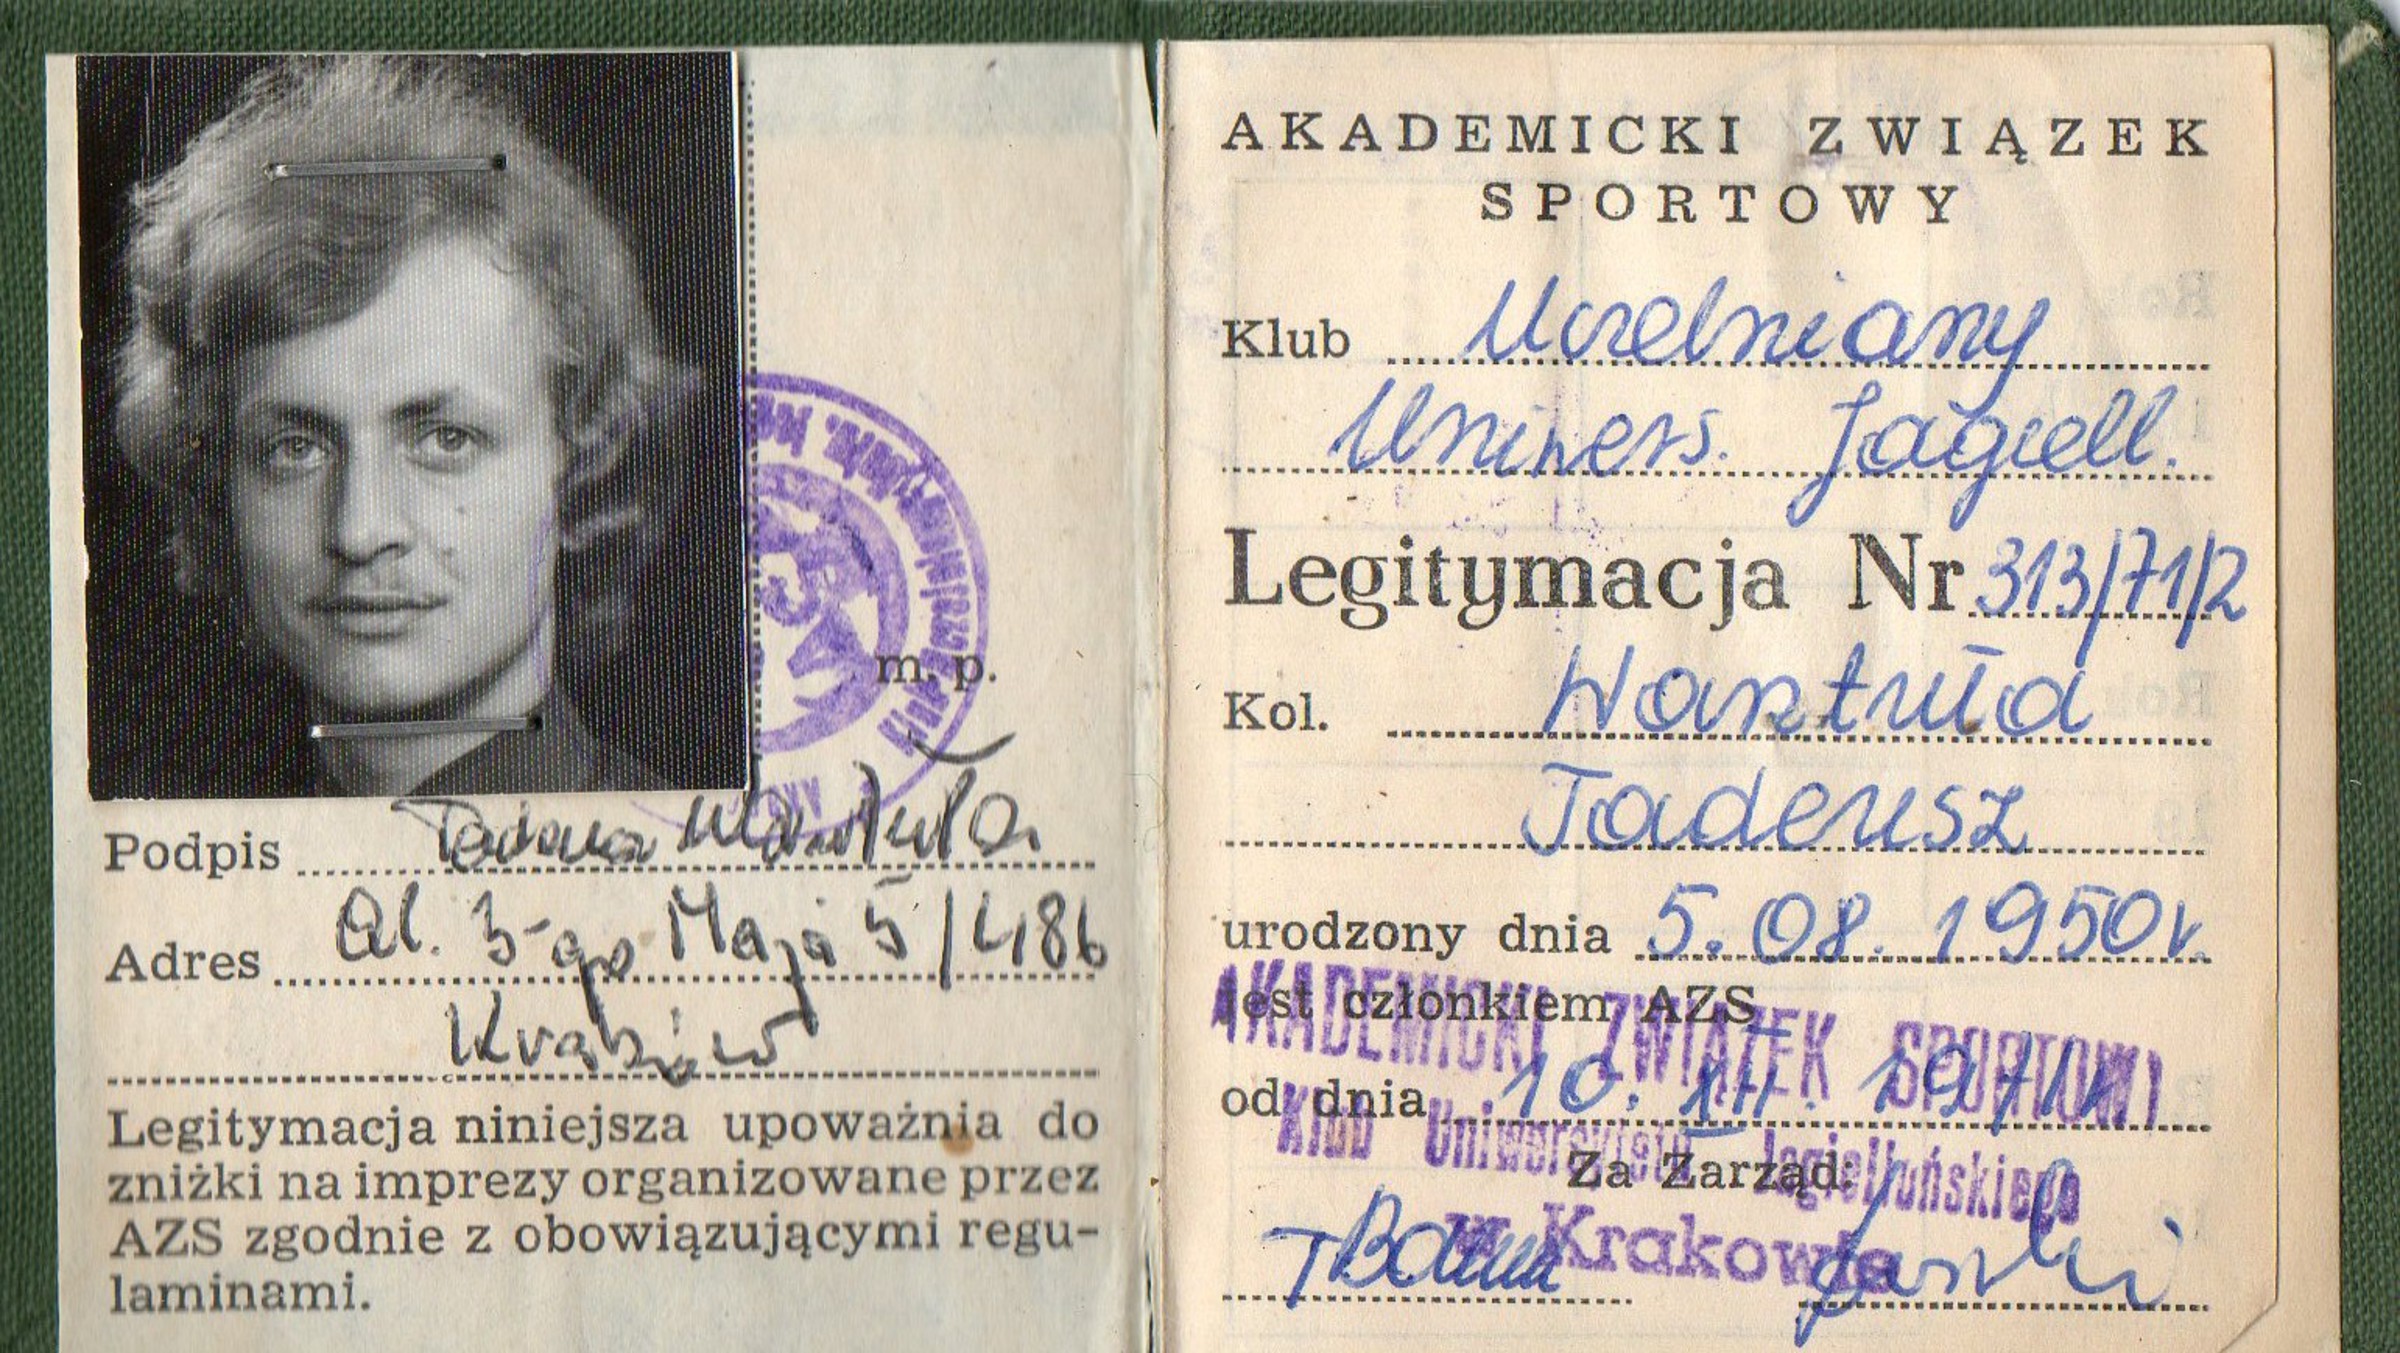 m. p.
Podpis Tadeusz Wantuła
Adres Al. 3-go Maja 5/486
Kraków
Legitymacja niniejsza upoważnia do
zniżki na imprezy organizowane przez
AZS zgodnie z obowiązującymi regu-
laminami.
AKADEMICKI ZWIĄZEK
SPORTOWY
Klub Uczelniany
Uniwers. Jagiell.
Legitymacja Nr 313/71/2
Kol. Wantuła
Tadeusz
urodzony dnia 5.08.1950r.
jest członkiem AZS
AKADEMICKI ZWIĄZEK SPORTOWY
od dnia 10. XII. 1971r.
Klub Uniwersytetu Jagiellońskiego
Za Zarząd:
w Krakowie